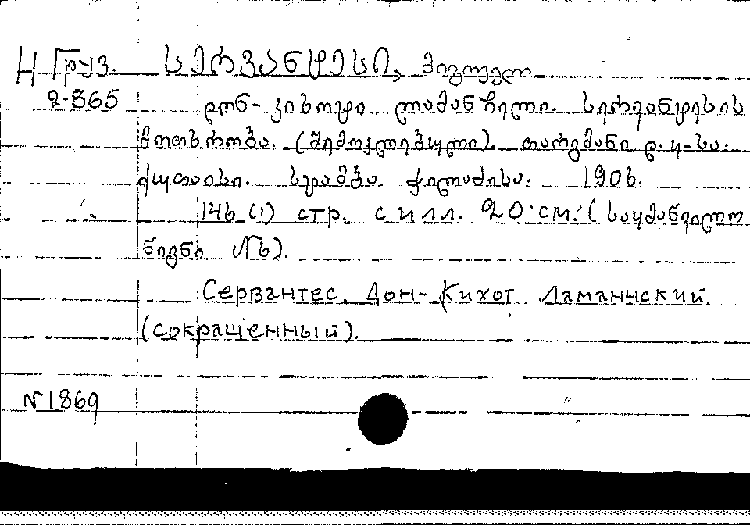 Н Груз. სერვანტესი, მიგუელ
2-865 დონ-კიხოტი ლამანჩელი. სერვანტესის
მოთხრობა. (შემოკლებული). თარგმანი დ. კ-სა.
ქუთაისი. სტამბა კილაძისა. 1906.
146 (1) стр. с илл. 20 см. (საყმაწვილო
წიგნი №6).
Сервантес. Дон-Кихот Ламанчский.
(сокращенный).
№1869